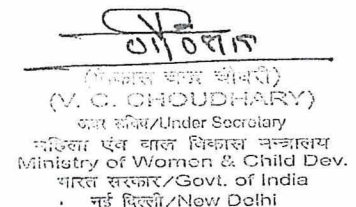 (V. C. CHOUDHARY)
अवर सचिव/Under Secretary
महिला एंव बाल विकास मन्त्रालय
Ministry of Women & Child Dev.
भारत सरकार/Govt. of India
नई दिल्ली/New Delhi